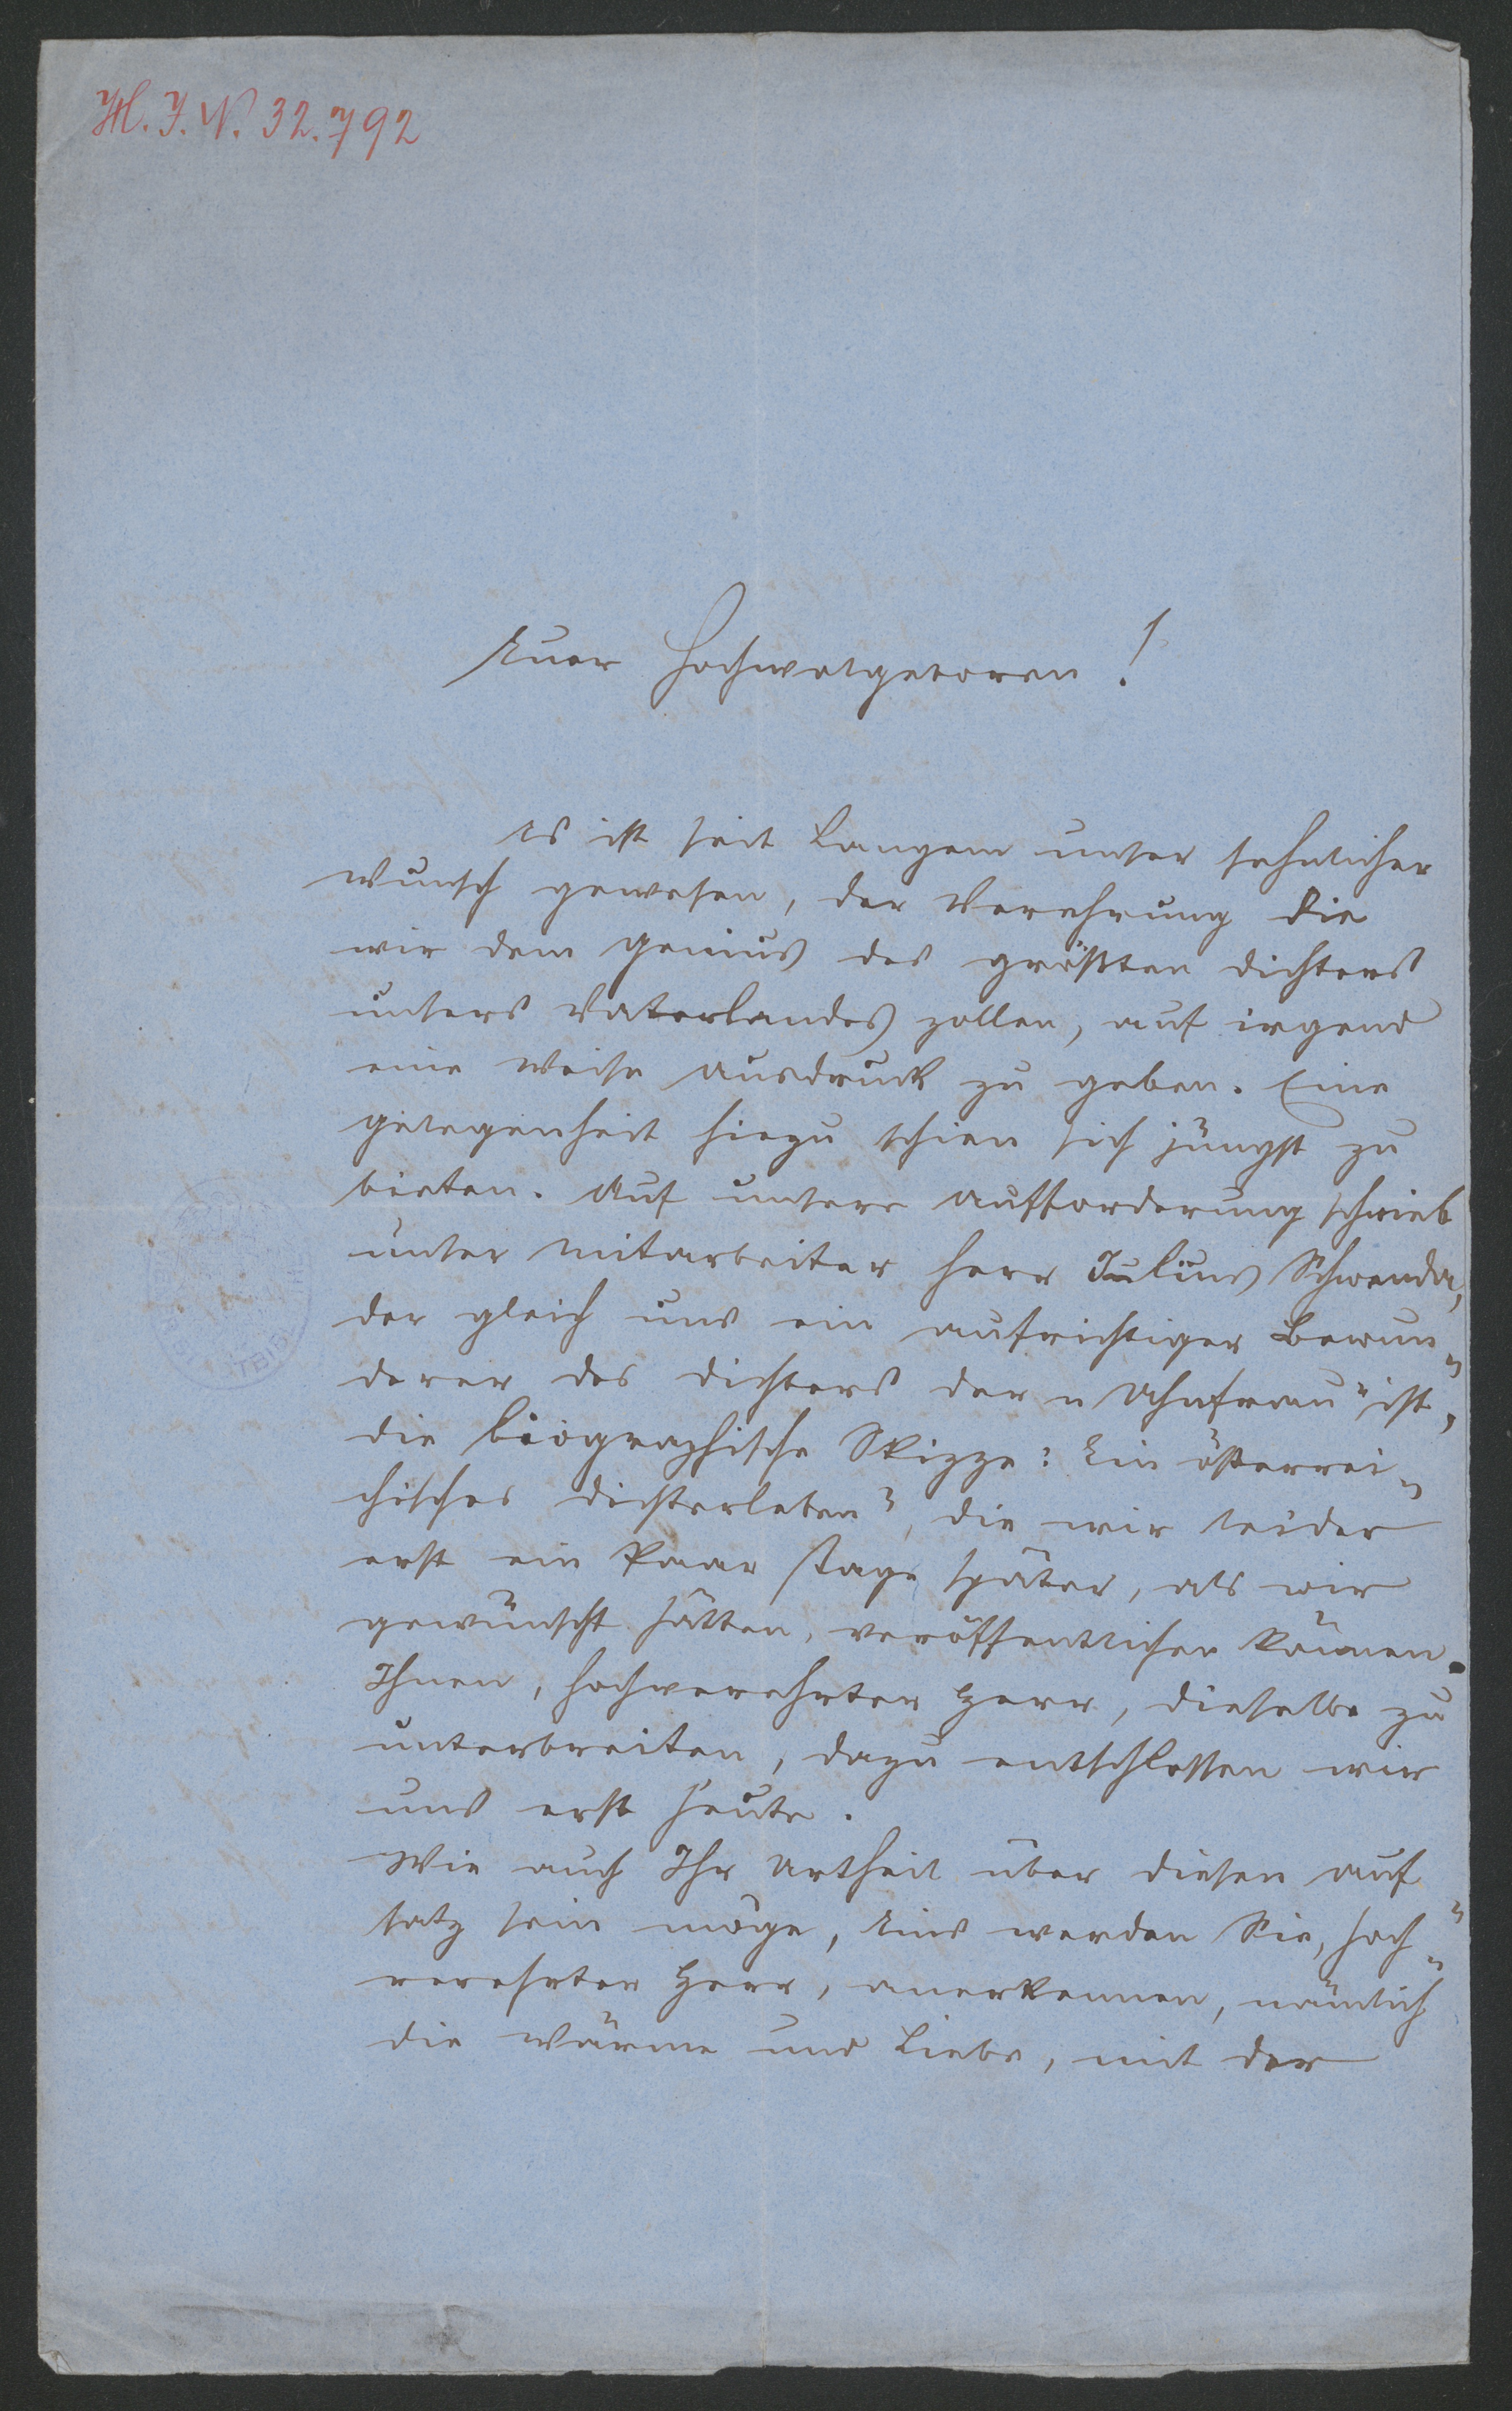 H. I. N. 32.792
Euer Hochwolgeboren!
Es ist seit Langem unser sehnlicher
Wunsch gewesen, der Verehrung die
wir dem Genius des größten Dichters
unsers Vaterlandes zollen, auf irgend
eine Weise Ausdruck zu geben. Eine
Gelegenheit hiezu schien sich jüngst zu
bieten. Auf unsere Aufforderung schrieb
unser Mitarbeiter Herr Julius Schwenda,
der gleich uns ein aufrichtiger Bewun„
derer des Dichters der „Ahnfrau" ist,
die biographische Skizze: Ein österrei„
chisches Dichterleben", die wir leider
erst ein Paar Tage später, als wir
gewünscht hätten, veröffentlichen können.
Ihnen, hochverehrter Herr, dieselbe zu
unterbreiten, dazu entschlossen wir
uns erst heute.
Wie auch Ihr Urtheil über diesen Auf„
satz sein möge, Eins werden Sie, hoch„
verehrter Herr, anerkennen, nämlich
die Wärme und Liebe, mit der